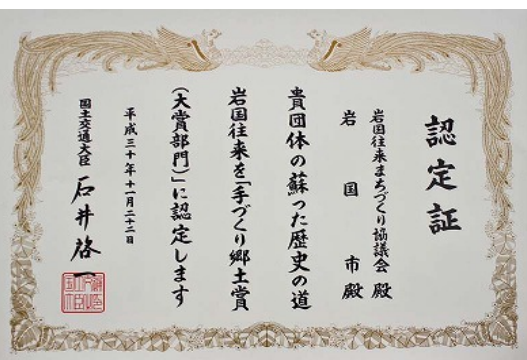 認定証
岩国往来まちづくり協議会 殿
岩国市 殿
貴団体の蘇った歴史の道
岩国往来を「手づくり郷土賞
(大賞部門)」に認定します
平成三十年十一月二十二日
国土交通大臣 石井啓一